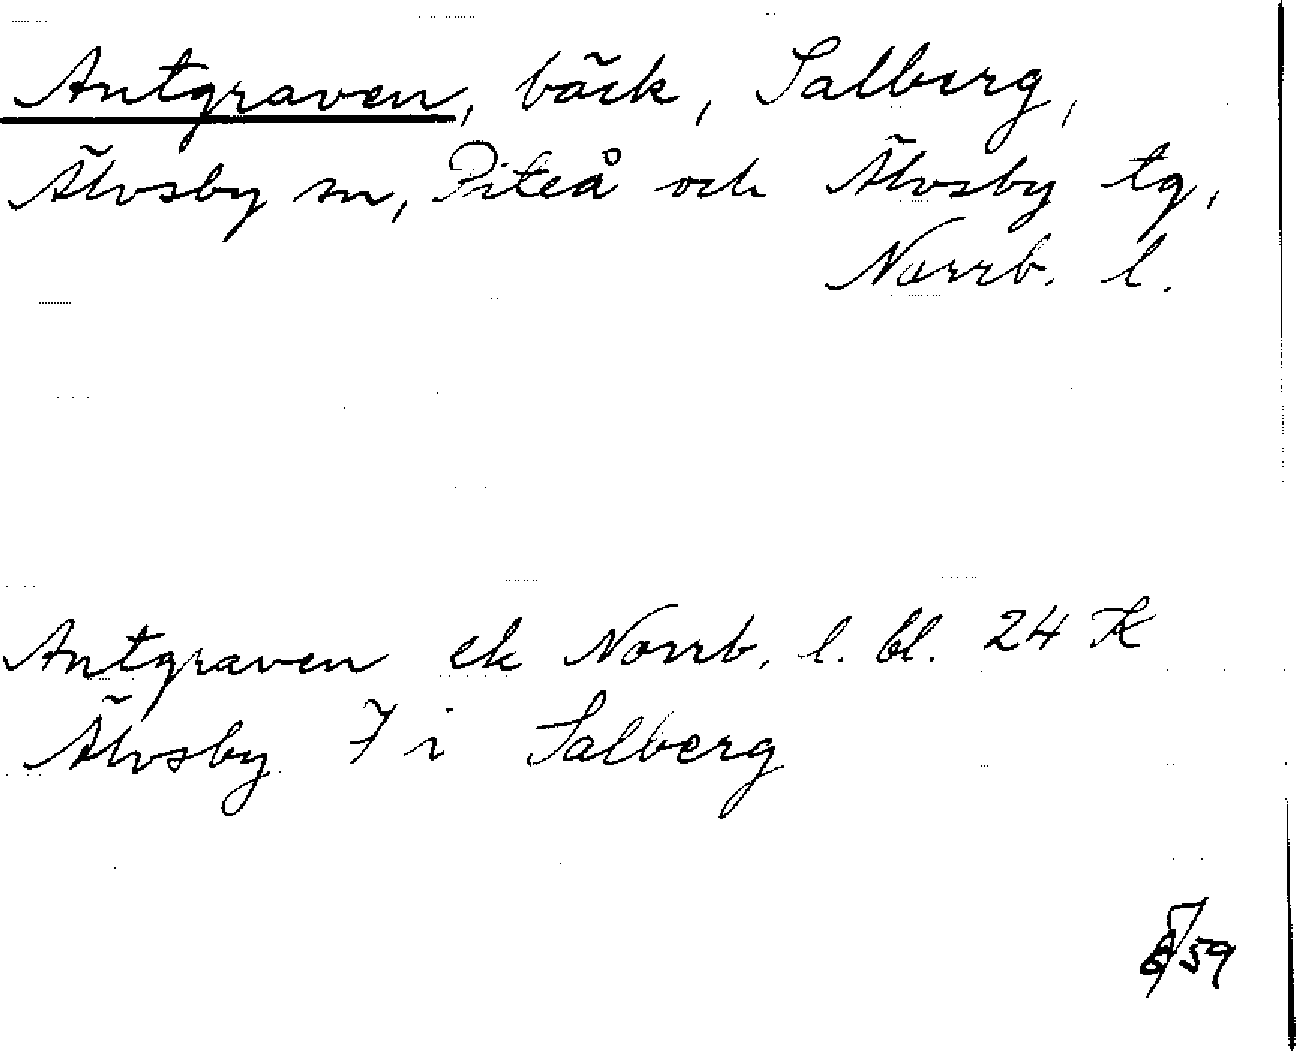 Antgraven, bäck, Salberg,
Älvsby sn, Piteå och Älvsby tg,
Norrb. l.
Antgraven ek Norrb. l. bl. 24 K
Älvsby 7 i Salberg